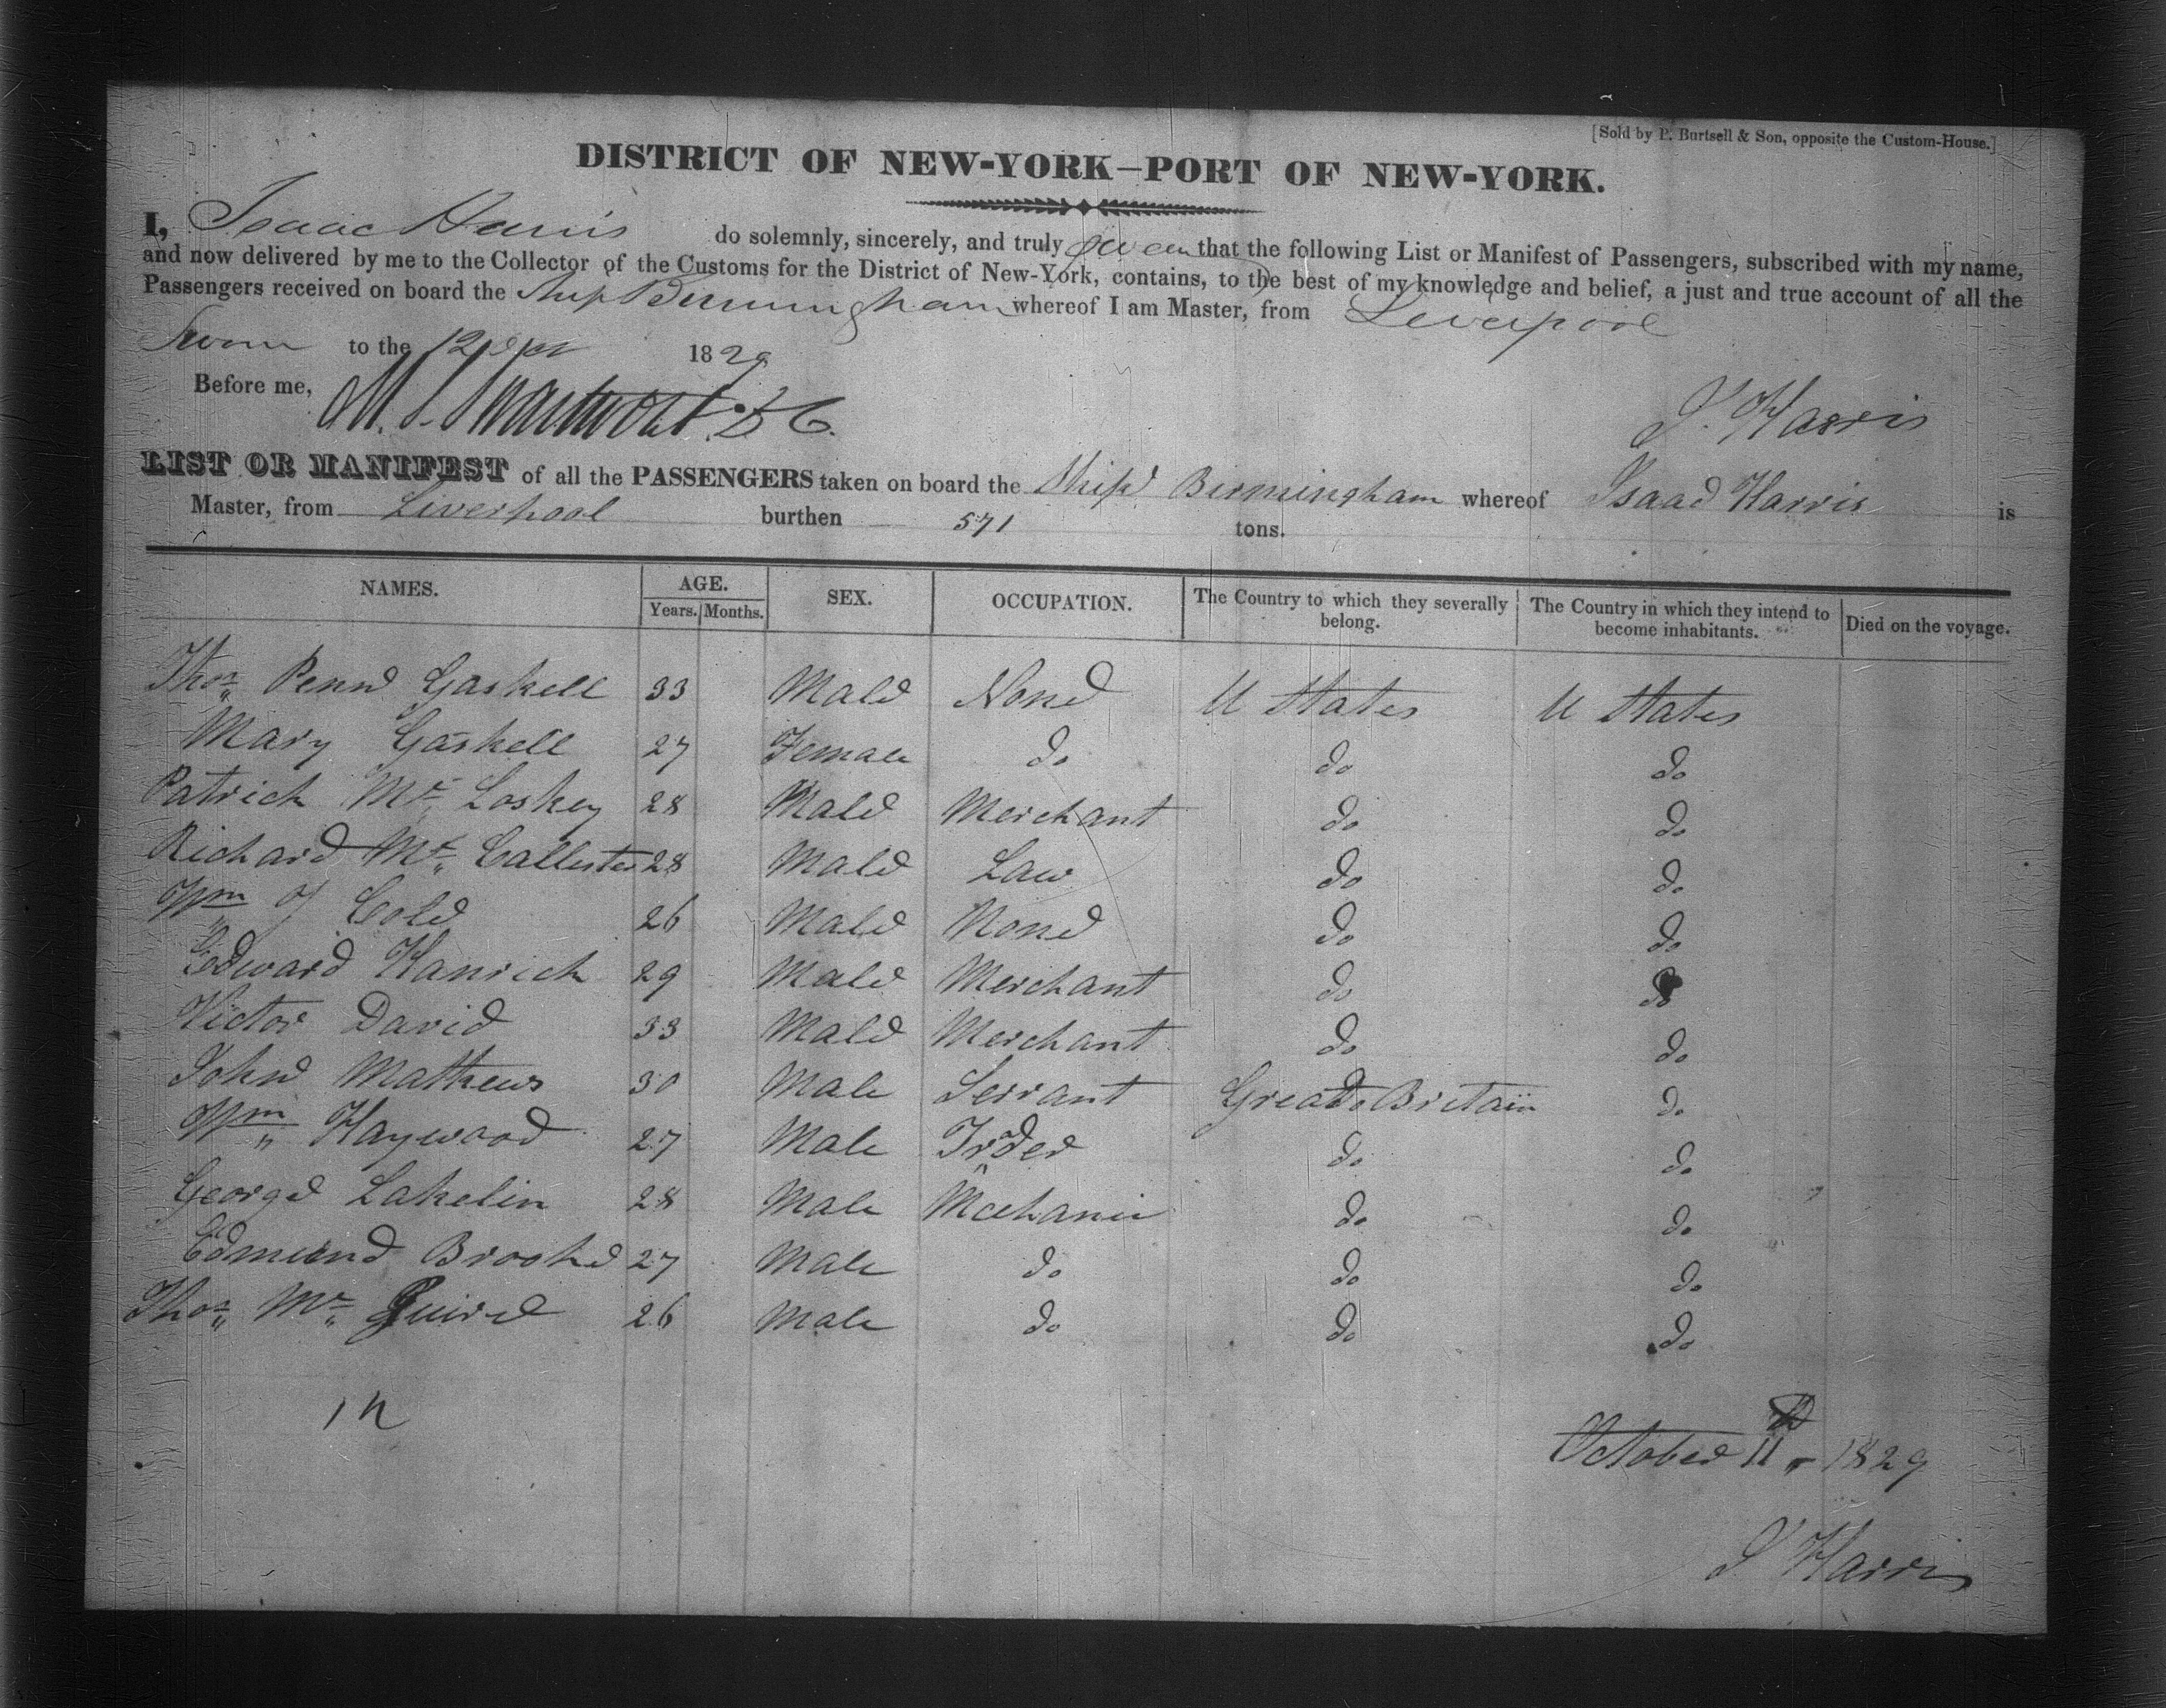 [Sold by P. Burtsell & Son, opposite the Custom-House.]
DISTRICT OF NEW-YORK—PORT OF NEW-YORK.
I, Isaac Harris do solemnly, sincerely, and truly swear that the following List or Manifest of Passengers, subscribed with my name,
and now delivered by me to the Collector of the Customs for the District of New-York, contains, to the best of my knowledge and belief, a just and true account of all the
Passengers received on board the Ship Birmingham whereof I am Master, from Liverpool
Sworn to the 12 1829
Before me, M. S. Swartwout D C.
J. Harris
LIST OR MANIFEST of all the PASSENGERS taken on board the Ship Birmingham whereof Isaac Harris is
Master, from Liverpool burthen 571 tons.
NAMES. AGE. Years. Months. SEX. OCCUPATION. The Country to which they severally belong. The Country in which they intend to become inhabitants. Died on the voyage.
Thos Penn Gaskell 33 Male None U States U States
Mary Gaskell 27 Female do do do
Patrick Mc Loskey 28 Male Merchant do do
Richard Mc Callester 28 Male Law do do
Wm Cole 26 Male None do do
Edward Hanrick 29 Male Merchant do do
Victor David 33 Male Merchant do do
John Mathews 30 Male Servant Great Britain do
Wm Haywood 27 Male Trader do do
George Lakelin 28 Male Mechanic do do
Edmund Brooke 27 Male do do do
Thos Mc Guire 26 Male do do do
12
October 11 1829
J Harris